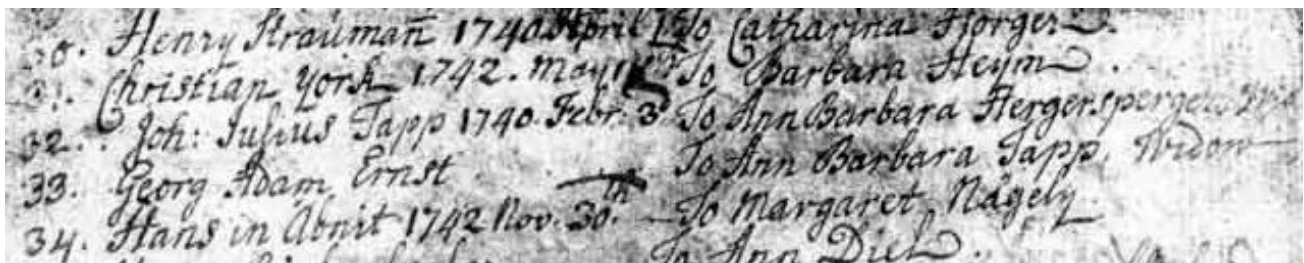 30. Henry Straumañ 1740 April To Catharina Horger.
31. Christian York 1742. May To Barbara Heym.
32. Joh: Julius Tapp 1740. Febr. 3 To Ann Barbara Hergersperger,
33. Georg Adam Ernst To Ann Barbara Tapp, Widow
34. Hans in Abnit 1742 Nov. 30th. To Margaret Nägely.
To Ann Diel.